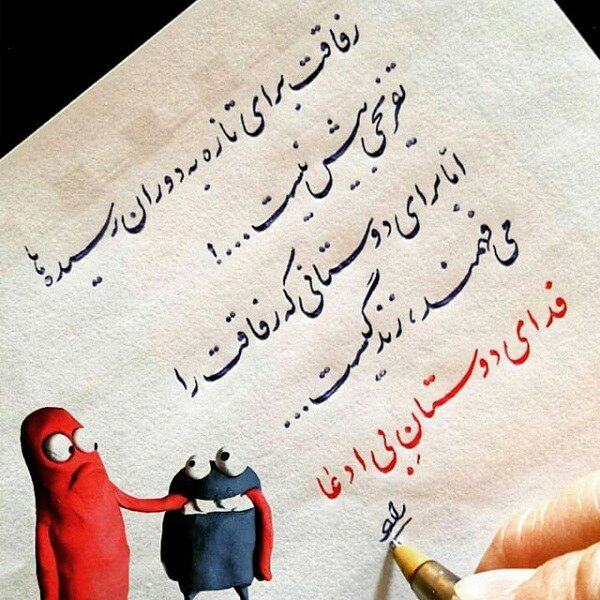 رفاقت برای تازه به دوران رسیده ها
تفریحی بیش نیست....!
امّا برای دوستانی که رفاقت را
می فهمند، زندگیست...
فدای دوستانِ بی ادعا